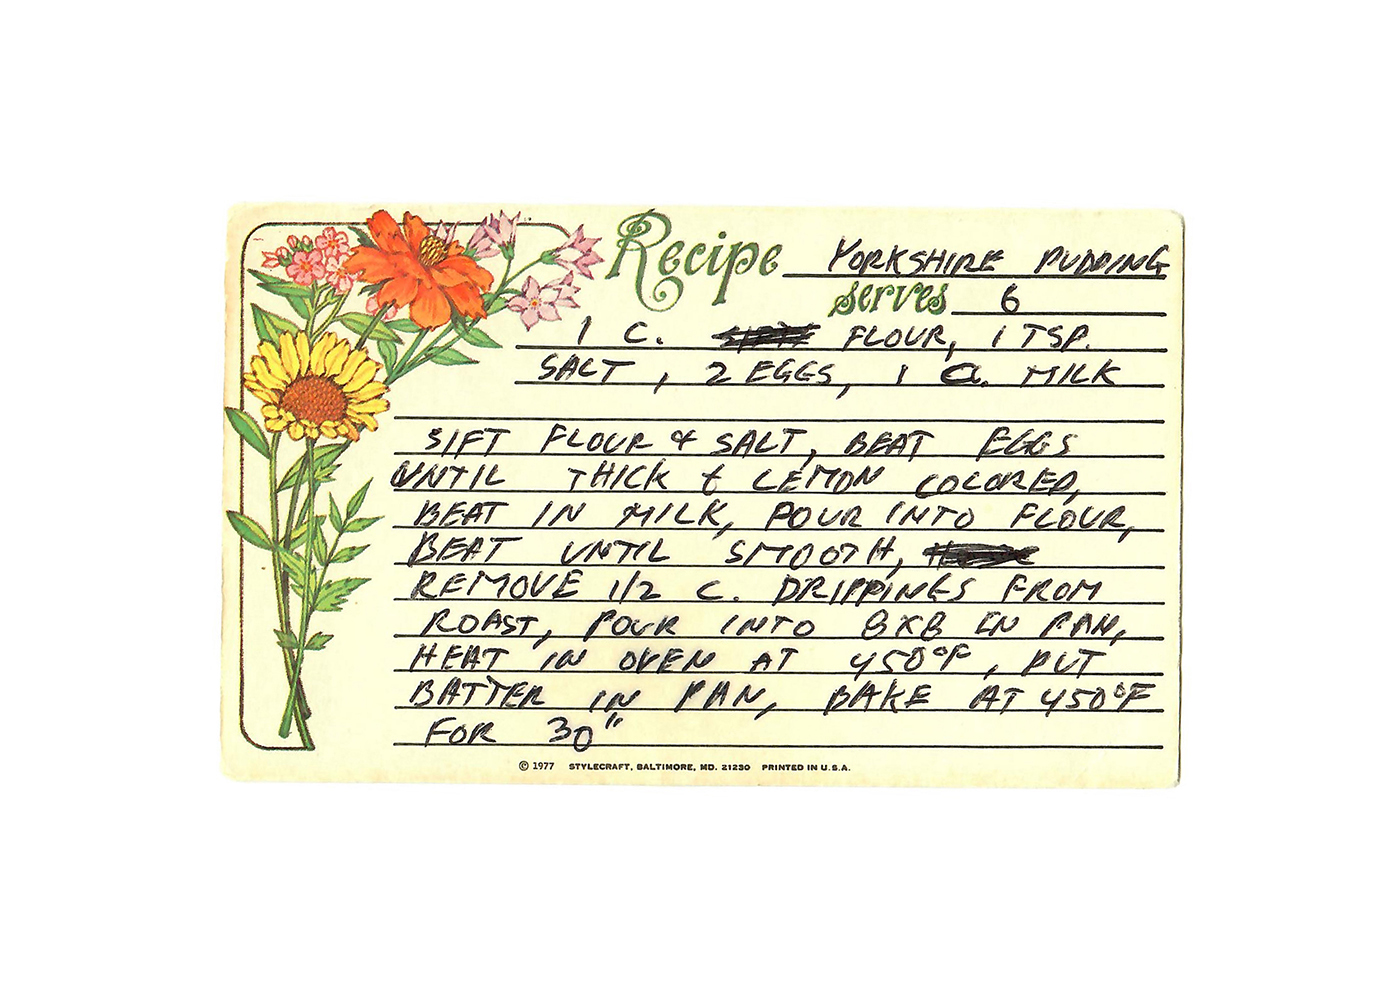 Recipe YORKSHIRE PUDDING
serves 6
1 C. FLOUR, 1 TSP.
SALT, 2 EGGS, 1 C. MILK
SIFT FLOUR & SALT, BEAT EGGS
UNTIL THICK & LEMON COLORED,
BEAT IN MILK, POUR INTO FLOUR,
BEAT UNTIL SMOOTH,
REMOVE 1/2 C. DRIPPINGS FROM
ROAST, POUR INTO 8X8 IN PAN,
HEAT IN OVEN AT 450°F, PUT
BATTER IN PAN, BAKE AT 450°F
FOR 30"
© 1977 STYLECRAFT, BALTIMORE, MD. 21230 PRINTED IN U.S.A.